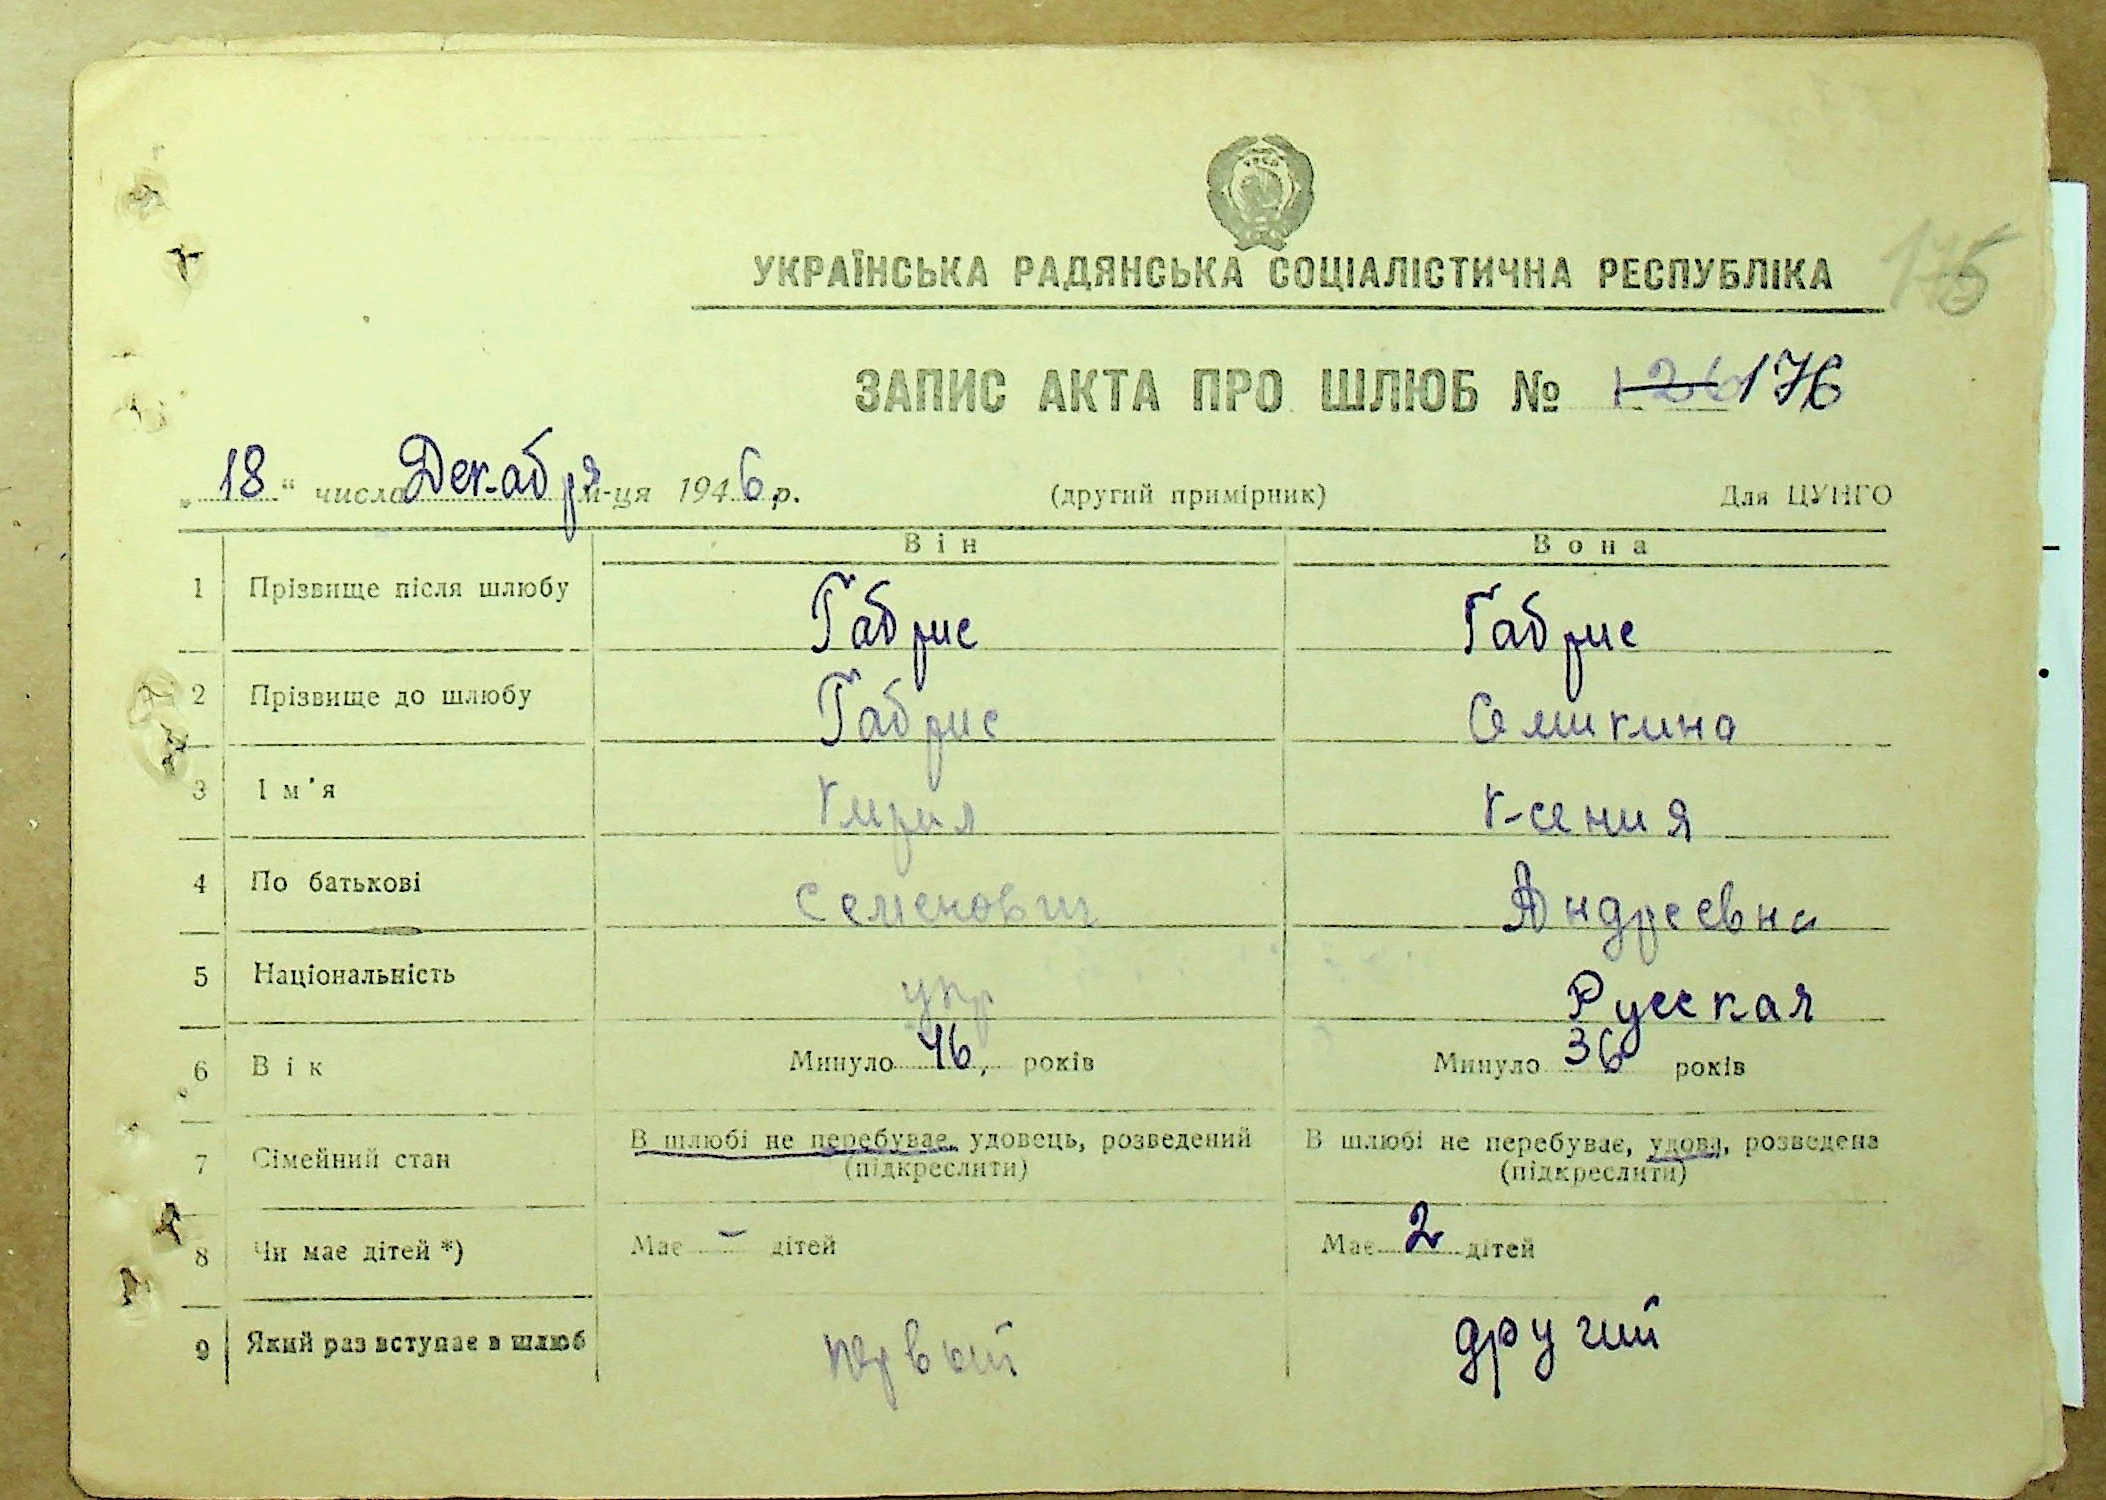 175
УКРАЇНСЬКА РАДЯНСЬКА СОЦІАЛІСТИЧНА РЕСПУБЛІКА
ЗАПИС АКТА ПРО ШЛЮБ № 126 176
„18“ числа Декабря м-ця 1946 р. (другий примірник) Для ЦУНГО
Він Вона
1 Прізвище після шлюбу Габрис Габрис
2 Прізвище до шлюбу Габрис Семикина
3 Ім'я Кирил Ксения
4 По батькові Семенович Андреевна
5 Національність укр Русская
6 Вік Минуло 46, років Минуло 36 років
7 Сімейний стан В шлюбі не перебуває, удовець, розведений В шлюбі не перебуває, удова, розведена
(підкреслити) (підкреслити)
8 Чи має дітей *) Має - дітей Має 2 дітей
9 Який раз вступає в шлюб первый другий